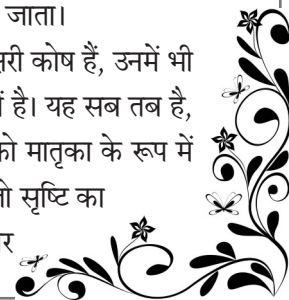 जाता।
कोष हैं, उनमें भी
है। यह सब तब है,
को मातृका के रूप में
सृष्टि का